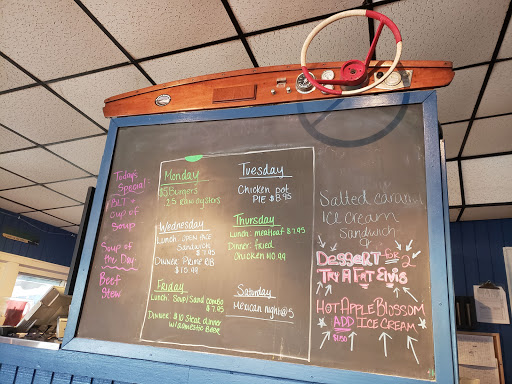 Today's
Special:
BLT +
cup of
soup
Soup
of the
Day
Beef
Stew
Monday
$5 Burgers
.25 Raw oysters
Tuesday
Chicken pot
PIE $8.95
Wednesday
Lunch: open face
Sandwich
$7.95
Dinner: Prime RB
$10.99
Thursday
Lunch: meatloaf $7.95
Dinner: fried
Chicken 10.99
Friday
Lunch: Soup/Sand combo
$7.95
Dinner: $10 Steak dinner
w/domestic Beer
Saturday
Mexican night@5
Salted caramel
Ice cream
Sandwich
or
Dessert for 2
Try A Fat Elvis
Hot Apple Blossom
ADD Ice Cream
$1.50